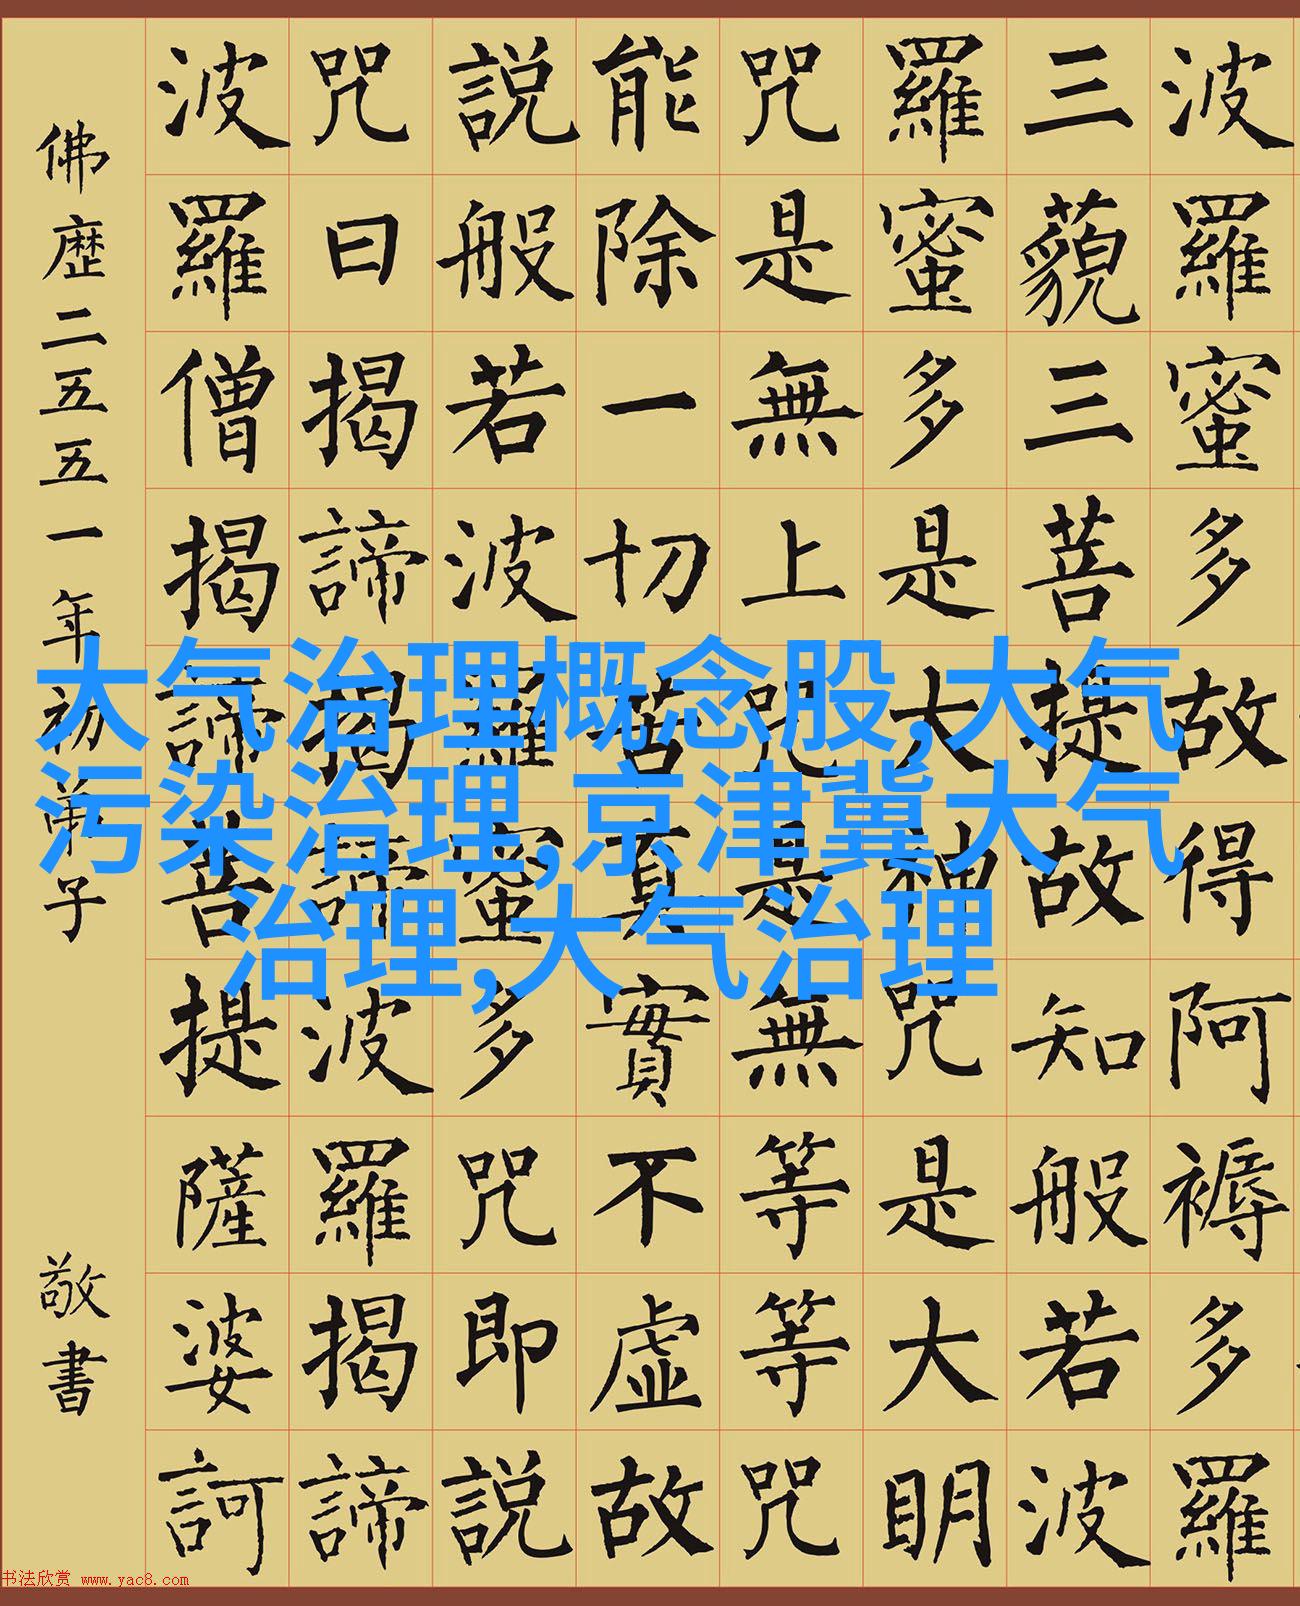 波羅蜜多故得阿褥多羅
三藐三菩提故知般若波
羅蜜多是大神咒是大明
咒是無上咒是無等等咒
能除一切苦真實不虛故
說般若波羅蜜多咒即說
咒曰揭諦揭諦波羅揭諦
波羅僧揭諦菩提薩婆訶
佛歷二五五一年初弟子 敬書
大气治理概念股,大气
污染治理,京津冀大气
治理,大气治理
书法欣赏 www.yac8.com